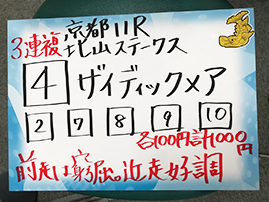 3連複 京都11R
北山ステークス
4 ザイディックメア
2 7 8 9 10
各100円計1000円
前走は窮屈。近走好調